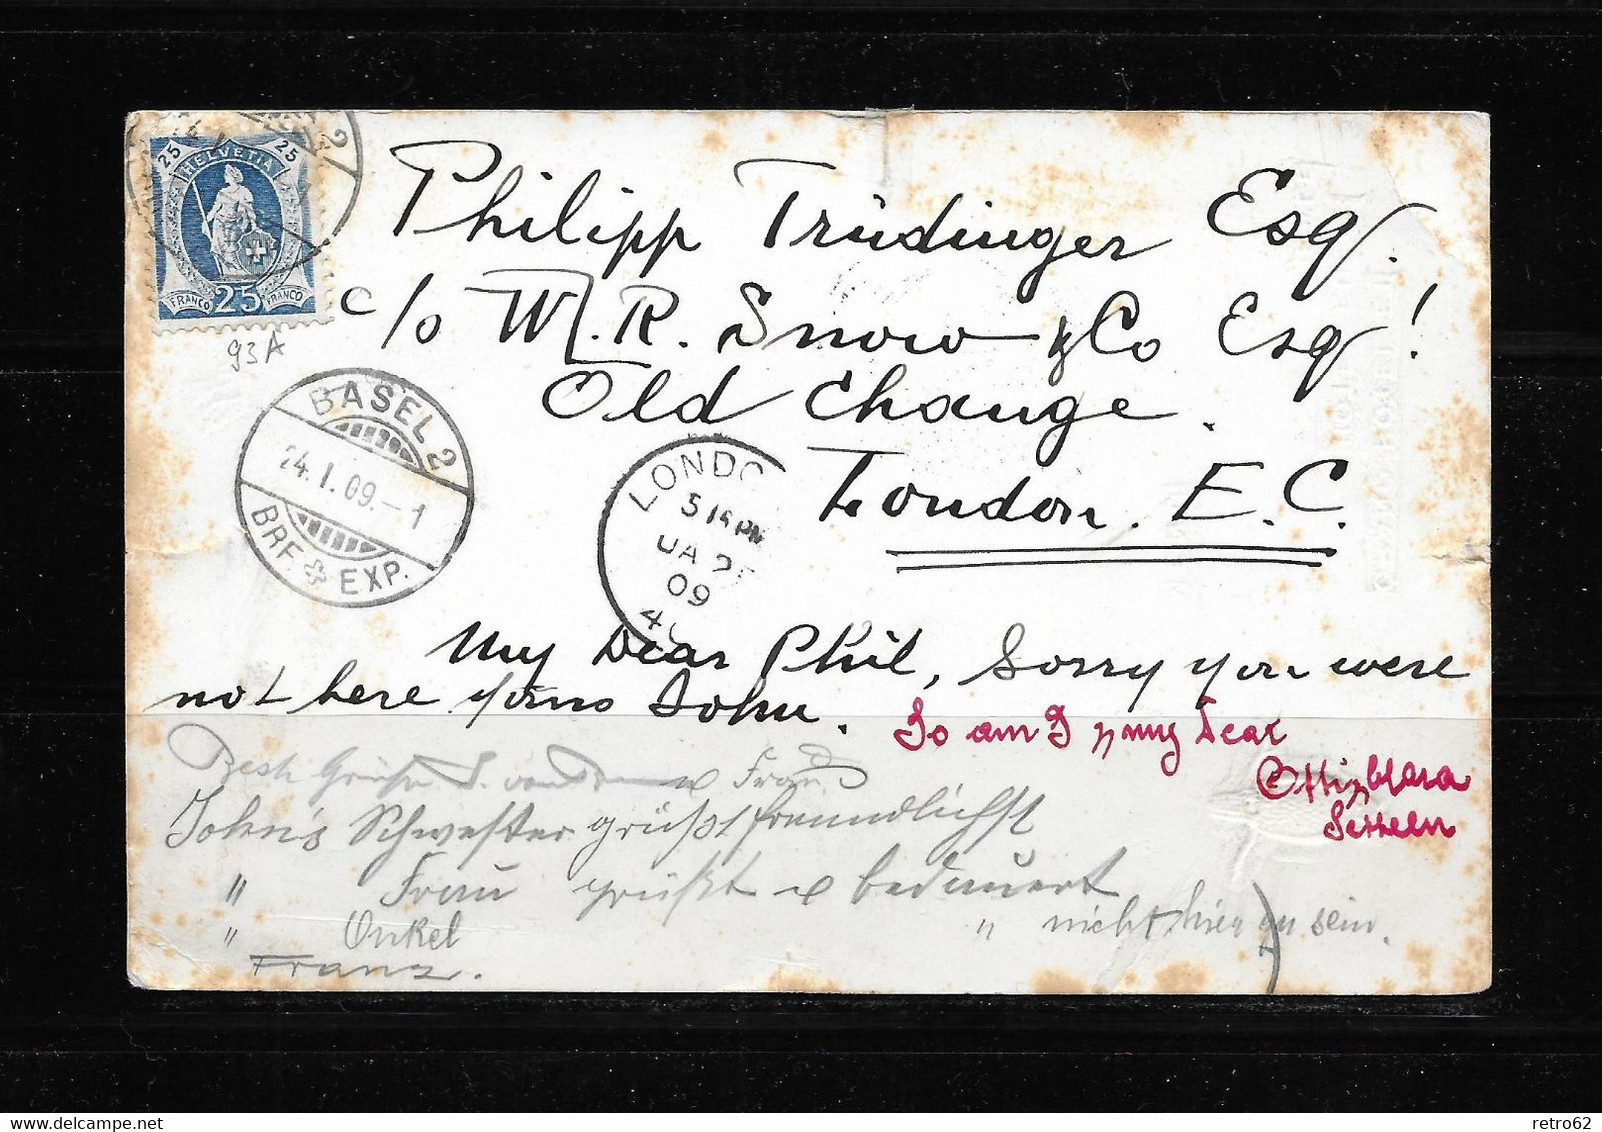 25 HELVETIA 25
FRANCO 25 FRANCO
93A
Philipp Trüdinger Esq.
c/o W.R. Snow & Co Esq!
Old Change.
London. E.C.
BASEL 2
24.I.09.-1
BRF. EXP.
LONDO
5 15 PM
JA 2
09
4
My Dear Phil, Sorry you were
not here yours John.
So am I my Dear
Best Grüße von Frau
John's Schwester grüßt freundlichst
" Frau grüßt u bedauert
" Onkel " nicht hier zu sein.
Franz.
retro62